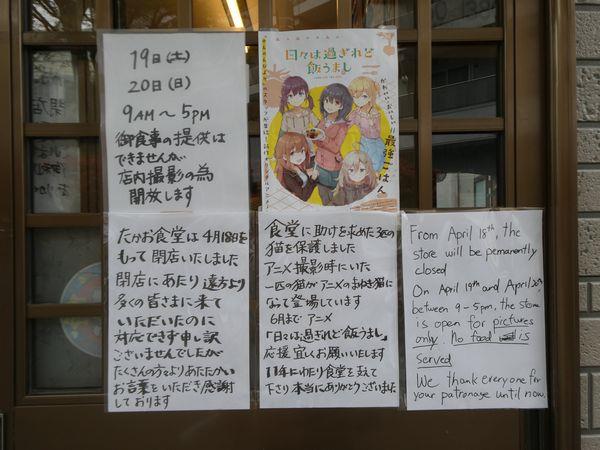 19日(土)
20日(日)
9AM～5PM
御食事の提供は
できませんが
店内撮影の為
開放します
日々は過ぎれど
飯うまし
かわいい×おいしい!!
最強ごはん
たかお食堂は4月18日を
もって閉店いたしました
閉店にあたり遠方より
多くの皆さまに来て
いただいたのに
対応できず申し訳
ございませんでしたが
たくさんの方よりあたたかい
お言葉をいただき感謝
しております
食堂に助けを求めた3匹の
猫を保護しました
アニメ撮影時にいた
一匹の猫がアニメのまねき猫に
なって登場しています
6月までアニメ
「日々は過ぎれど飯うまし」
応援宜しくお願いいたします
11年にわたり食堂を支えて
下さり本当にありがとうございました
From April 18th, the
store will be permanently
closed
On April 19th and April 20th
between 9-5pm, the store
is open for pictures
only. No food is
served
We thank everyone for
your patronage until now.